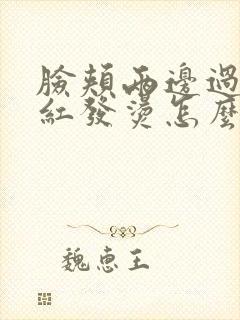 臉頰兩邊過
紅發燙怎麼
魏惠王